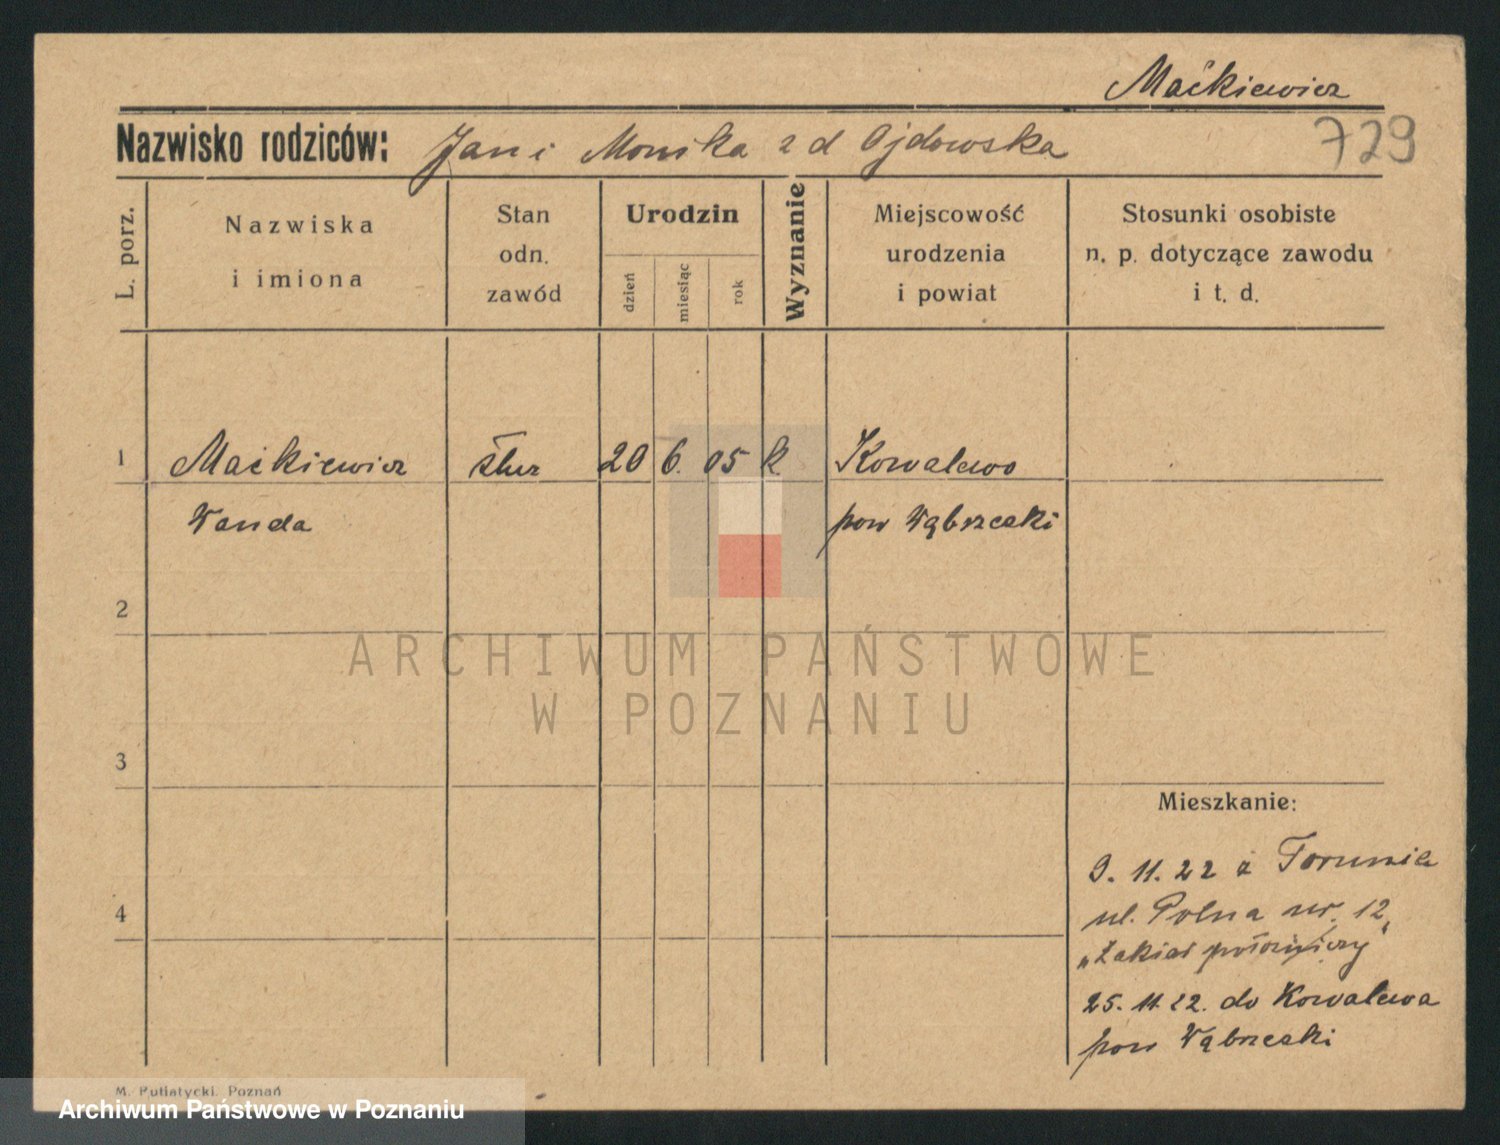 Maćkiewicz
Nazwisko rodziców: Jan i Monika z d Ojdowska
729
L. porz.
Nazwiska
i imiona
Stan
odn.
zawód
Urodzin
dzień
miesiąc
rok
Wyznanie
Miejscowość
urodzenia
i powiat
Stosunki osobiste
n. p. dotyczące zawodu
i t. d.
1 Maćkiewicz służ 20 6. 05 k. Kowalewo
Wanda pow Wąbrzeski
2
3
4
ARCHIWUM PAŃSTWOWE
W POZNANIU
Mieszkanie:
9. 11. 22 z Torunia
ul. Polna nr. 12
„Zakład położniczy"
25. 11. 22. do Kowalewa
pow Wąbrzeski
M. Putiatycki. Poznań
Archiwum Państwowe w Poznaniu